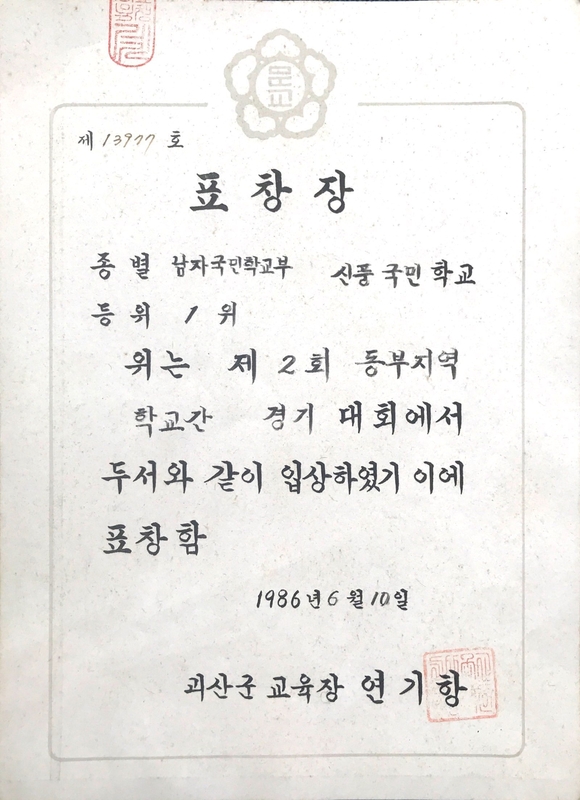 문교
제 13977 호
표창장
종별 남자국민학교부 신풍국민학교
등위 1위
위는 제2회 동부지역
학교간 경기 대회에서
두서와 같이 입상하였기 이에
표창함
1986년 6월 10일
괴산군 교육장 연기항